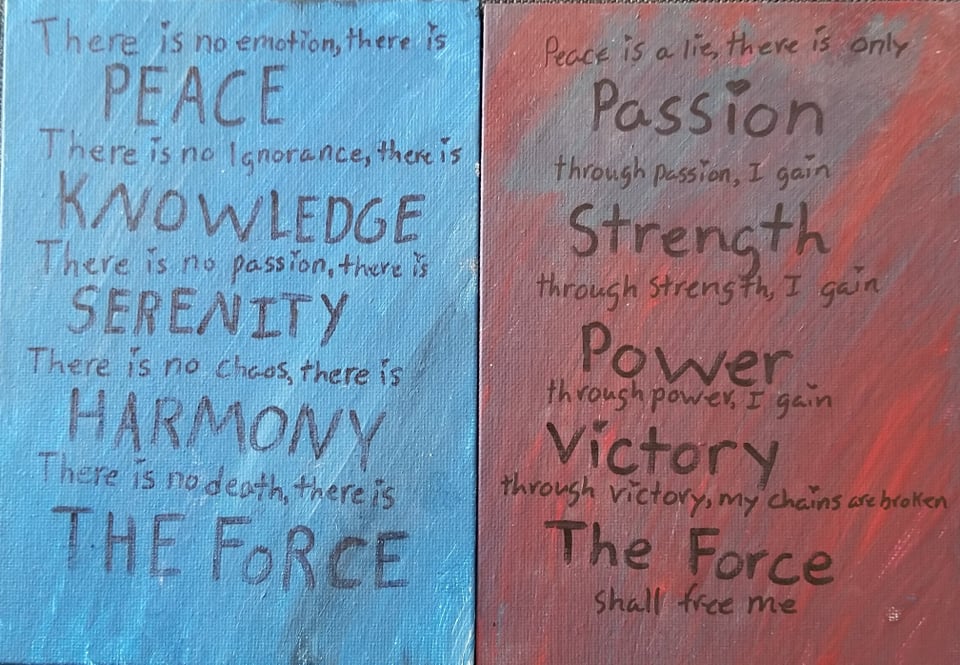 There is no emotion, there is
PEACE
There is no Ignorance, there is
KNOWLEDGE
There is no passion, there is
SERENITY
There is no chaos, there is
HARMONY
There is no death, there is
THE FoRCE
Peace is a lie, there is only
Passion
through passion, I gain
Strength
through strength, I gain
Power
through power, I gain
Victory
through victory, my chains are broken
The Force
shall free me